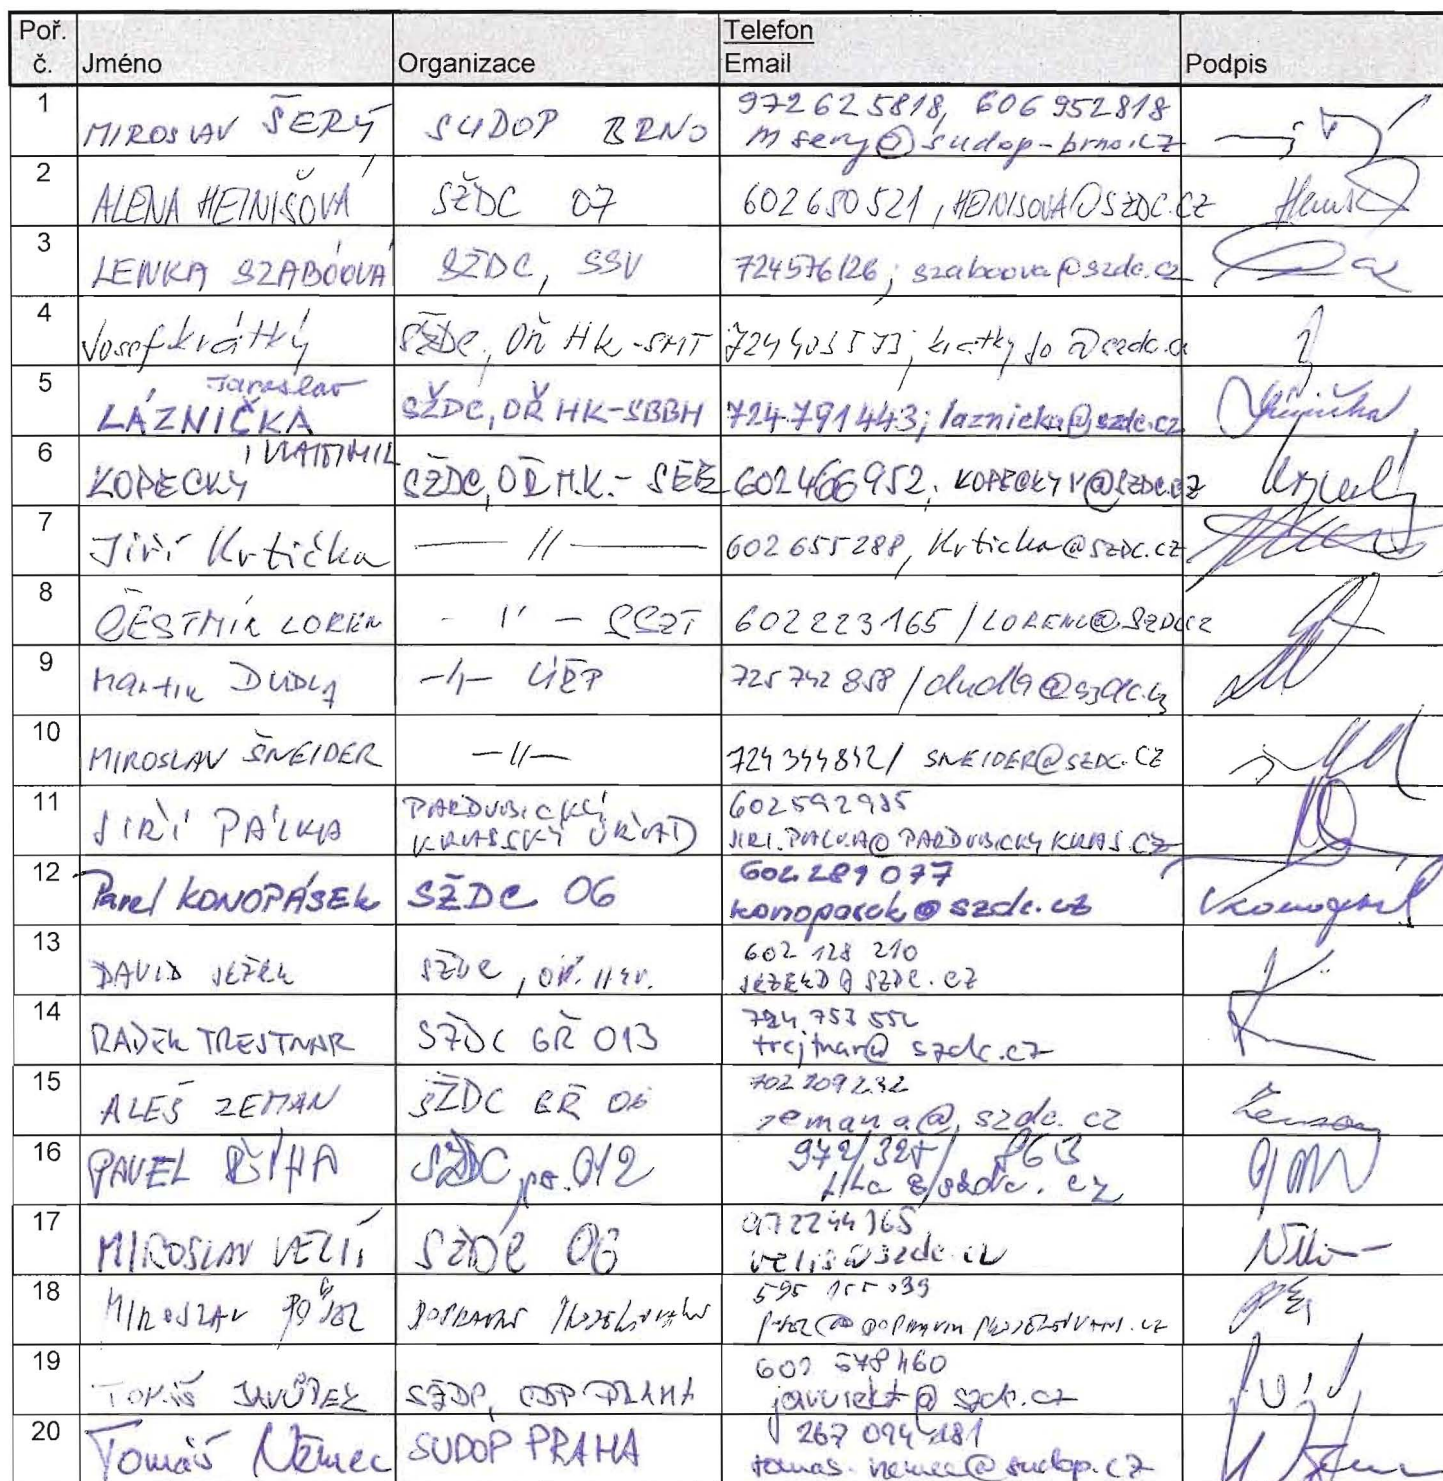 Poř. č. Jméno Organizace Telefon Email Podpis
1 MIROSLAV ŠERÝ SUDOP BRNO 972625818, 606952818
msery@sudop-brno.cz
2 ALENA HEINIŠOVÁ SŽDC 07 602650521, HEINISOVA@SZDC.CZ
3 LENKA SZABÓOVÁ SŽDC, SSV 724576126; szaboova@szdc.cz
4 Josef Krátký SŽDC, OŘ HK-SMT
5 Jaroslav
LÁZNIČKA SŽDC, OŘ HK-SBBH 724791443; laznicka@szdc.cz
6 VLADIMIR
KOPECKÝ SŽDC, OŘ H.K.- SEE 602466952, KOPECKYV@SZDC.CZ
7 Jiří Krtička — 〃 — 602655288, Krticka@SZDC.CZ
8 ČESTMÍR LOREN - 〃 - SSZT 602223165 / LORENC@SZDC.CZ
9 Martin DUDLA 725742858 / dudla@szdc.cz
10 MIROSLAV ŠNEIDER — 〃 — 724344842 / SNEIDER@SZDC.CZ
11 JIŘÍ PÁLKA PARDUBICKÝ
KRAJSKÝ ÚŘAD 602592985
JIRI.PALKA@PARDUBICKYKRAJ.CZ
12 Pavel KONOPÁSEK SŽDC 06 602289077
konopasek@szdc.cz
13 DAVID JEŽEK SŽDC, 602 128 210
JEZEKD@SZDC.CZ
14 RADEK TREJTNAR SŽDC GŘ 013 724 753 552
trejtnar@szdc.cz
15 ALEŠ ZEMAN SŽDC GŘ 06 702209232
zemana@szdc.cz
16 PAVEL SŽDC 012 972/325/
17 MIROSLAV VELIŠ SŽDC 06 972244365
velis@szdc.cz
18 MIROSLAV
19 TOMÁŠ JAVŮREK SŽDC, CDP PRAHA 602 578 460
javurekt@szdc.cz
20 Tomáš Němec SUDOP PRAHA 267 094 181
tomas.nemec@sudop.cz